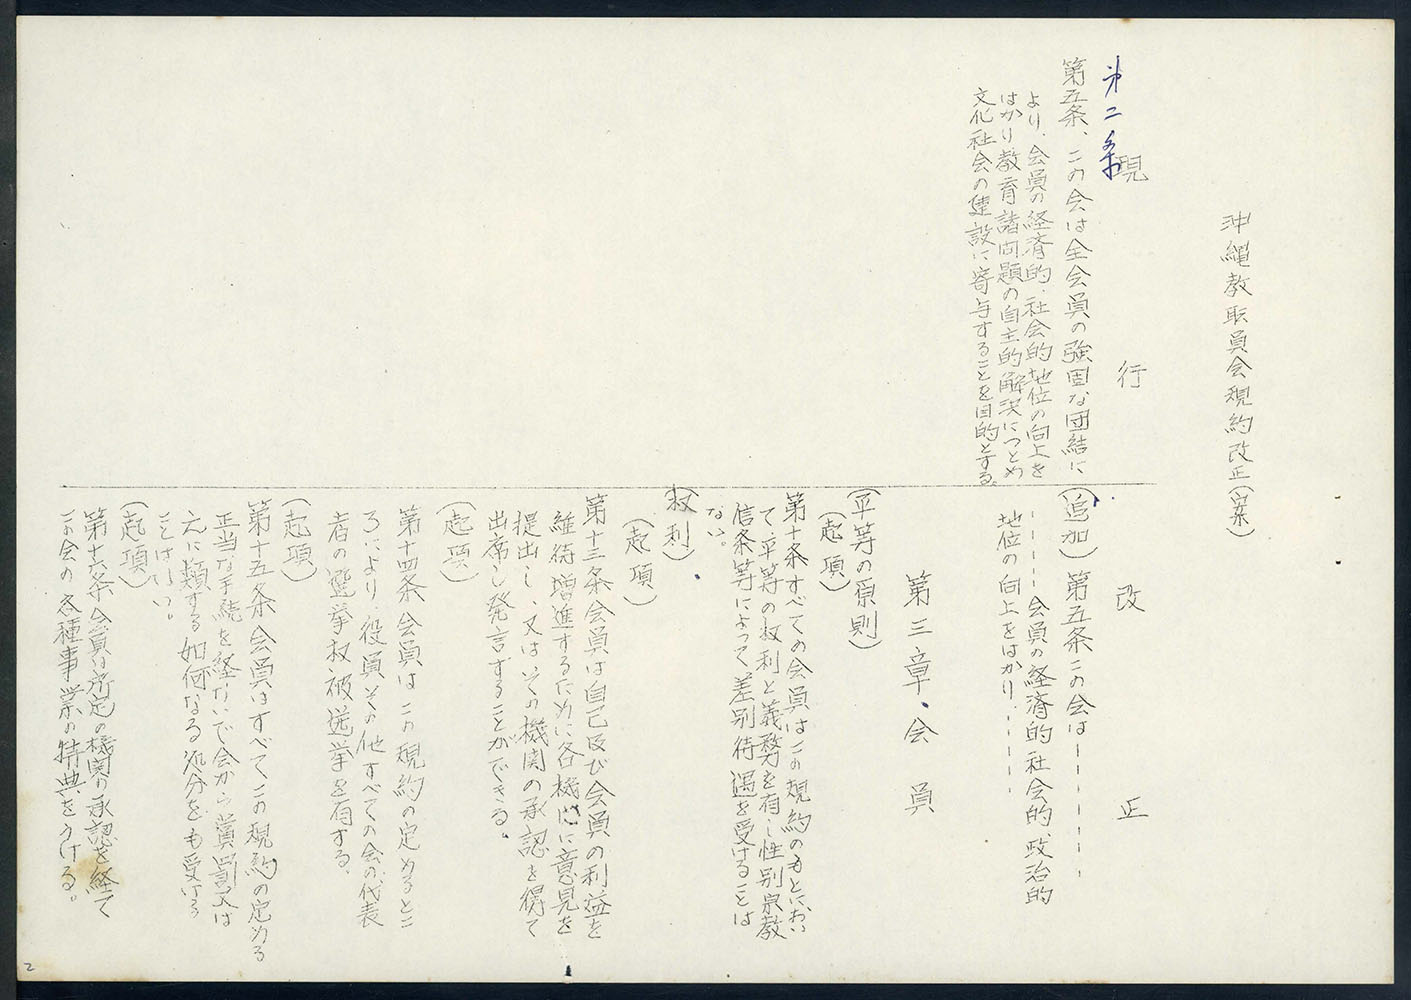 沖縄教职員会規約改正(案)
現行
第二条
第五条、この会は全会員の強固な団結に
より、会員の経済的、社会的地位の向上を
はかり、教育諸问題の自主的解決につとめ
文化社会の建設に寄与することを目的とする。
改正
(追加)第五条この会は－－－－－－
－－－－会員の経済的社会的、政治的
地位の向上をはかり、－－－－
第三章、会員
(平等の原則)
(起項)
第十条すべての会員はこの規約のもとにおい
て平等の权利と義務を有し性別宗教
信条等によって差別待遇を受けることは
ない。
(权利)
(起項)
第十三条会員は自己及び会員の利益を
維持増進するために各機関に意見を
提出し、又はその機関の承認を得て
出席し発言することができる。
(起項)
第十四条会員はこの規約の定めるとこ
ろにより、役員その他すべての会の代表
者の選挙权被選挙を有する、
(起項)
第十五条会員はすべてこの規約の定める
正当な手続を経ないで会から賞罰又は
之に類する如何なる処分をも受ける
ことはない。
(起項)
第十六条会員は所定の機関の承認を経て
この会の各種事業の特典をうける。
2